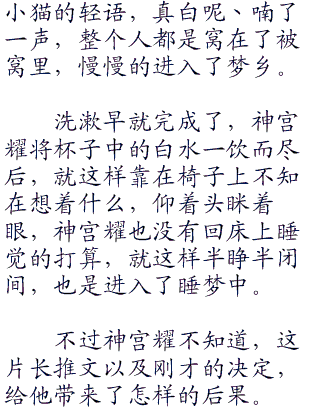 小猫的轻语，真白呢、喃了
一声，整个人都是窝在了被
窝里，慢慢的进入了梦乡。
洗漱早就完成了，神宫
耀将杯子中的白水一饮而尽
后，就这样靠在椅子上不知
在想着什么，仰着头眯着
眼，神宫耀也没有回床上睡
觉的打算，就这样半睁半闭
间，也是进入了睡梦中。
不过神宫耀不知道，这
片长推文以及刚才的决定，
给他带来了怎样的后果。